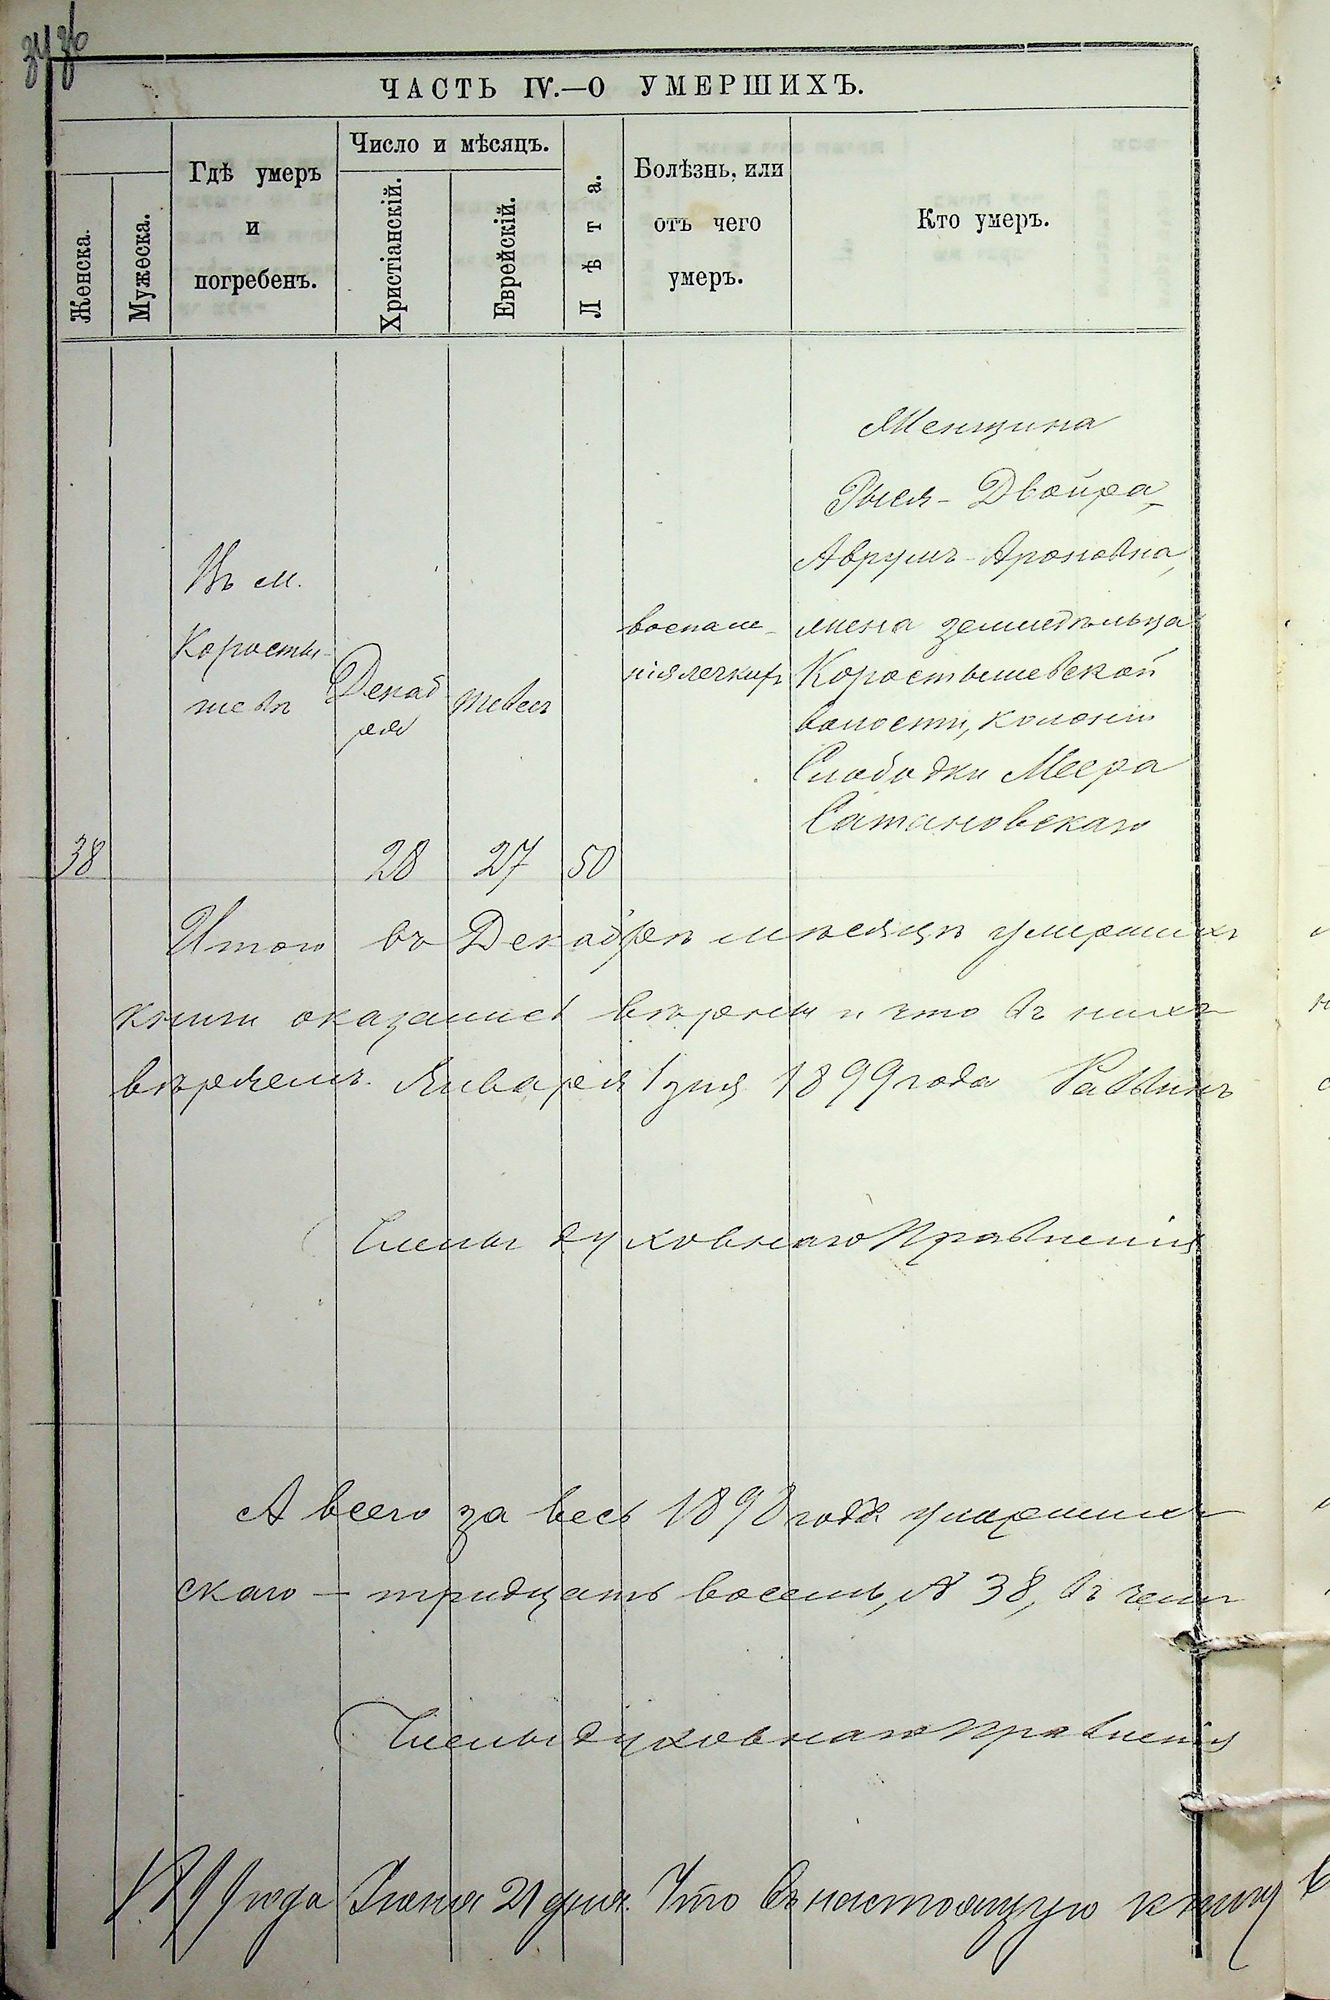 ЧАСТЬ IV.—О УМЕРШИХЪ.
Женска.
Мужеска.
Гдѣ умеръ
и
погребенъ.
Число и мѣсяцъ.
Христіанскій.
Еврейскій.
Лѣта.
Болѣзнь, или
отъ чего
умеръ.
Кто умеръ.
38
Въ м.
Коросты-
шевѣ
Декаб
ря
28
тевесъ
27
50
воспале-
нія легкихъ
Женщина
Рыся-Двойра,
Аврумъ-Ароновна,
жена земледѣльца
Коростышевской
волости, колоніи
Слободки Меера
Сатановскаго
Итого въ Декабрѣ мѣсяцѣ умершихъ
книги оказались вѣрны и что въ нихъ
вѣряемъ. Января 1 дня 1899 года Раввинъ
Члены духовнаго Правленія
А всего за весь 1898 годъ умершихъ
скаго — тридцать восемь, № 38, въ чемъ
Члены духовнаго Правленія
1899 года Іюня 21 дня. Что въ настоящую книгу